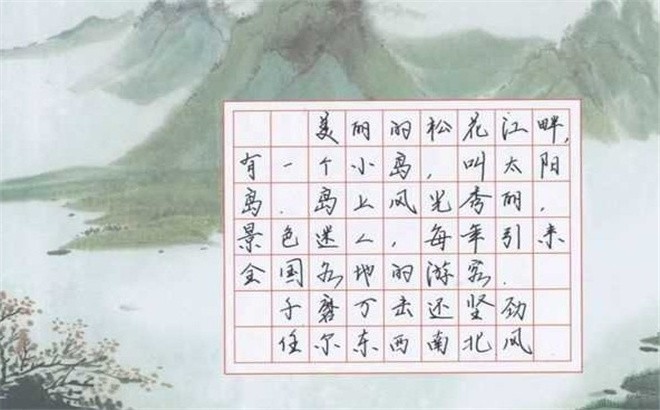 美丽的松花江畔,
有一个小岛,叫太阳
岛.岛上风光秀丽,
景色迷人,每年引来
全国各地的游客.
千磨万击还坚劲
任尔东西南北风